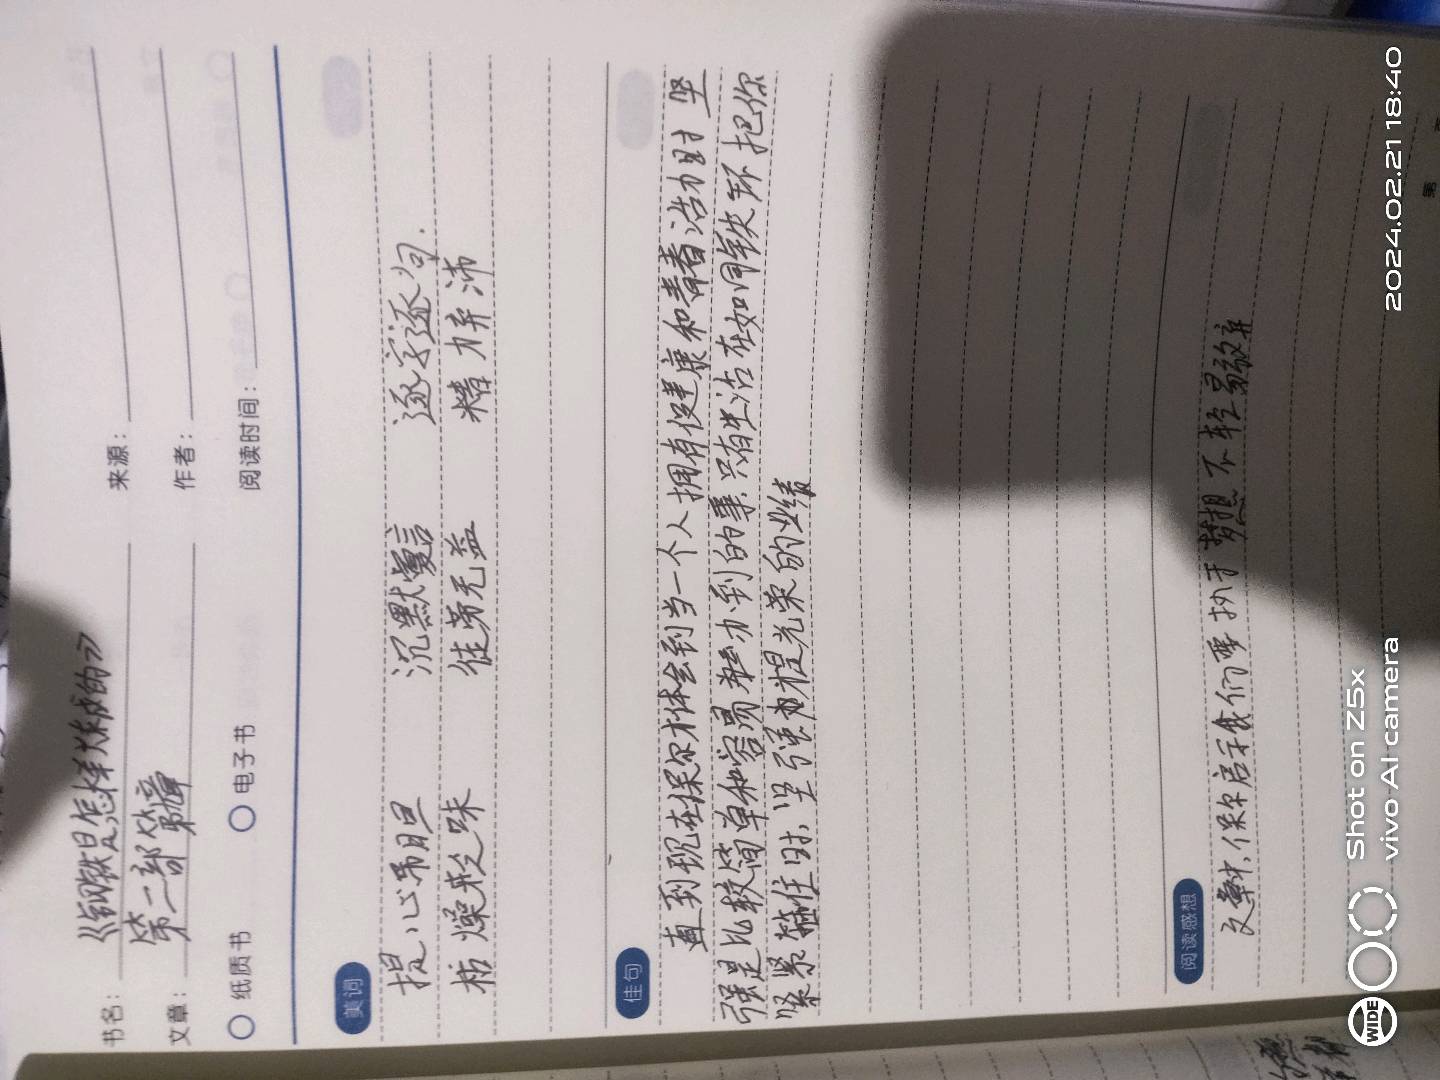 书名：《钢铁是怎样炼成的》
来源：
文章：第二部第
章
作者：
纸质书 电子书
阅读时间：
美词
提心吊胆 沉默寡言 逐字逐句.
枯燥乏味 徒劳无益 精力弃沛
佳句
直到现在保尔才体会到当一个人拥有健康和青春活力时 坚
强是比较简单和容易 办到的事 只有生活在如同铁环把你
紧紧箍住时，坚强才是光荣的业绩
阅读感想
文章中，保尔启示我们要执于梦想 不轻易放弃
第
WIDE
Shot on Z5x
vivo AI camera
2024.02.21 18:40